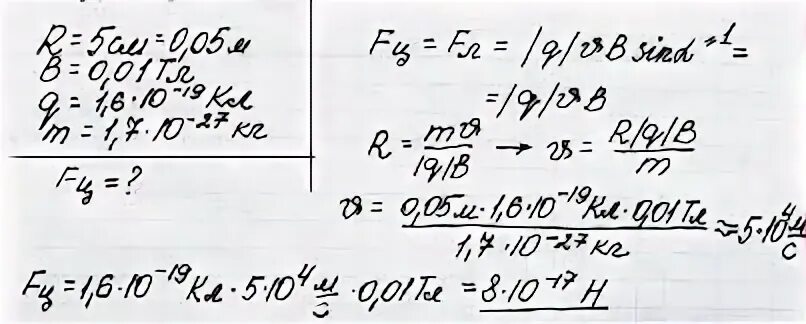 R = 5 см = 0,05 м
B = 0,01 Тл
q = 1,6·10⁻¹⁹ Кл
m = 1,7·10⁻²⁷ кг
Fц = ?
Fц = Fл = |q|υB sinα⁼¹ =
= |q|υB
R = mυ/|q|B → υ = R|q|B/m
υ = 0,05 м · 1,6·10⁻¹⁹ Кл · 0,01 Тл / 1,7·10⁻²⁷ кг ≈ 5·10⁴ м/с
Fц = 1,6·10⁻¹⁹ Кл · 5·10⁴ м/с · 0,01 Тл = 8·10⁻¹⁷ Н